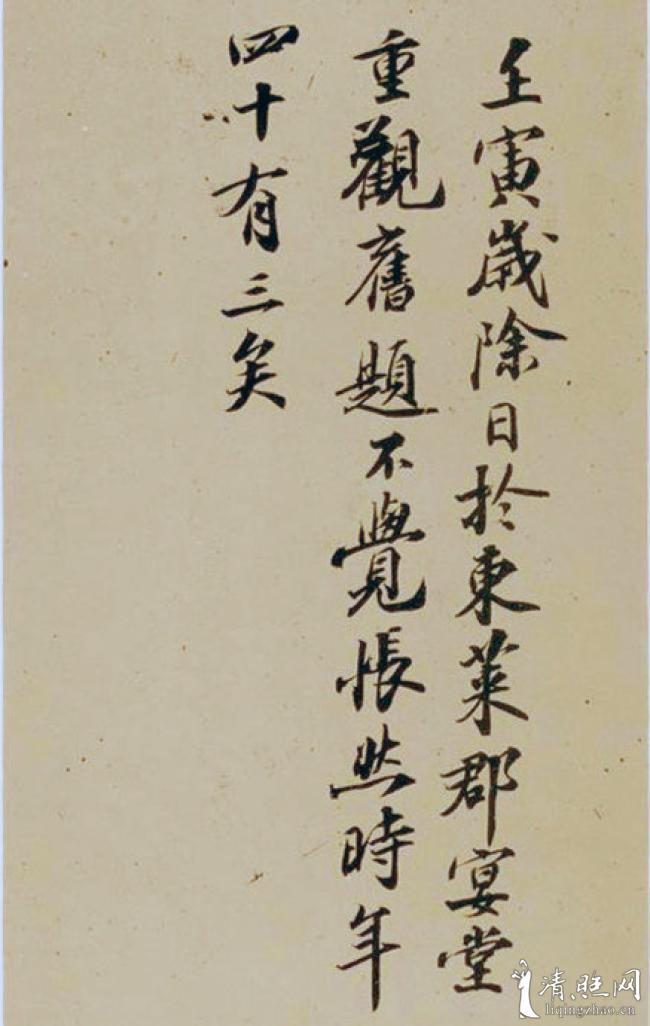 壬寅歲除日於東萊郡宴堂
重觀舊題不覺悵然時年
四十有三矣
清照网
liqingzhao.cn